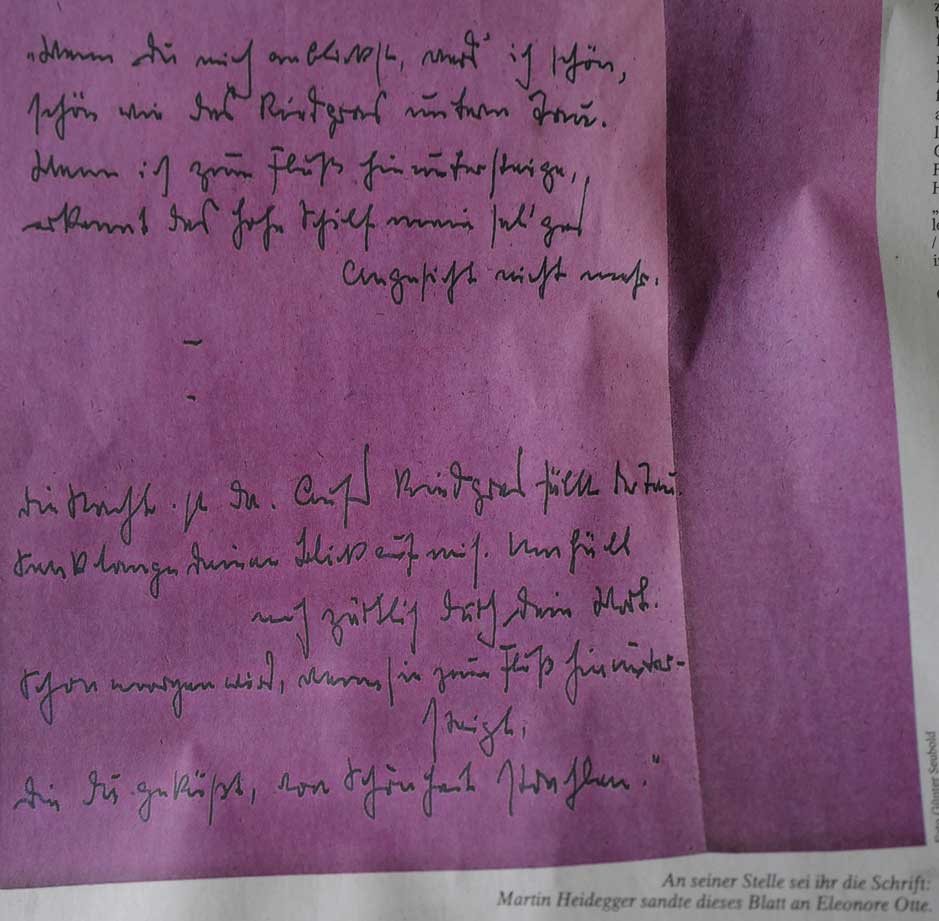 „Wenn du mich anblickst, werd' ich schön,
schön wie das Riedgras unterm Tau.
Wenn ich zum Fluß hinuntersteige,
erkennt das hohe Schilf mein sel'ges
Angesicht nicht mehr.
–
Die Nacht ist da. Aufs Riedgras fällt der Tau.
Senk lange deinen Blick auf mich. Umhüll
mich zärtlich durch dein Wort.
Schon morgen wird, wenn sie zum Fluß hinunter-
steigt,
die du geküßt, von Schönheit strahlen."
Foto Günter Seubold
An seiner Stelle sei ihr die Schrift:
Martin Heidegger sandte dieses Blatt an Eleonore Otte.